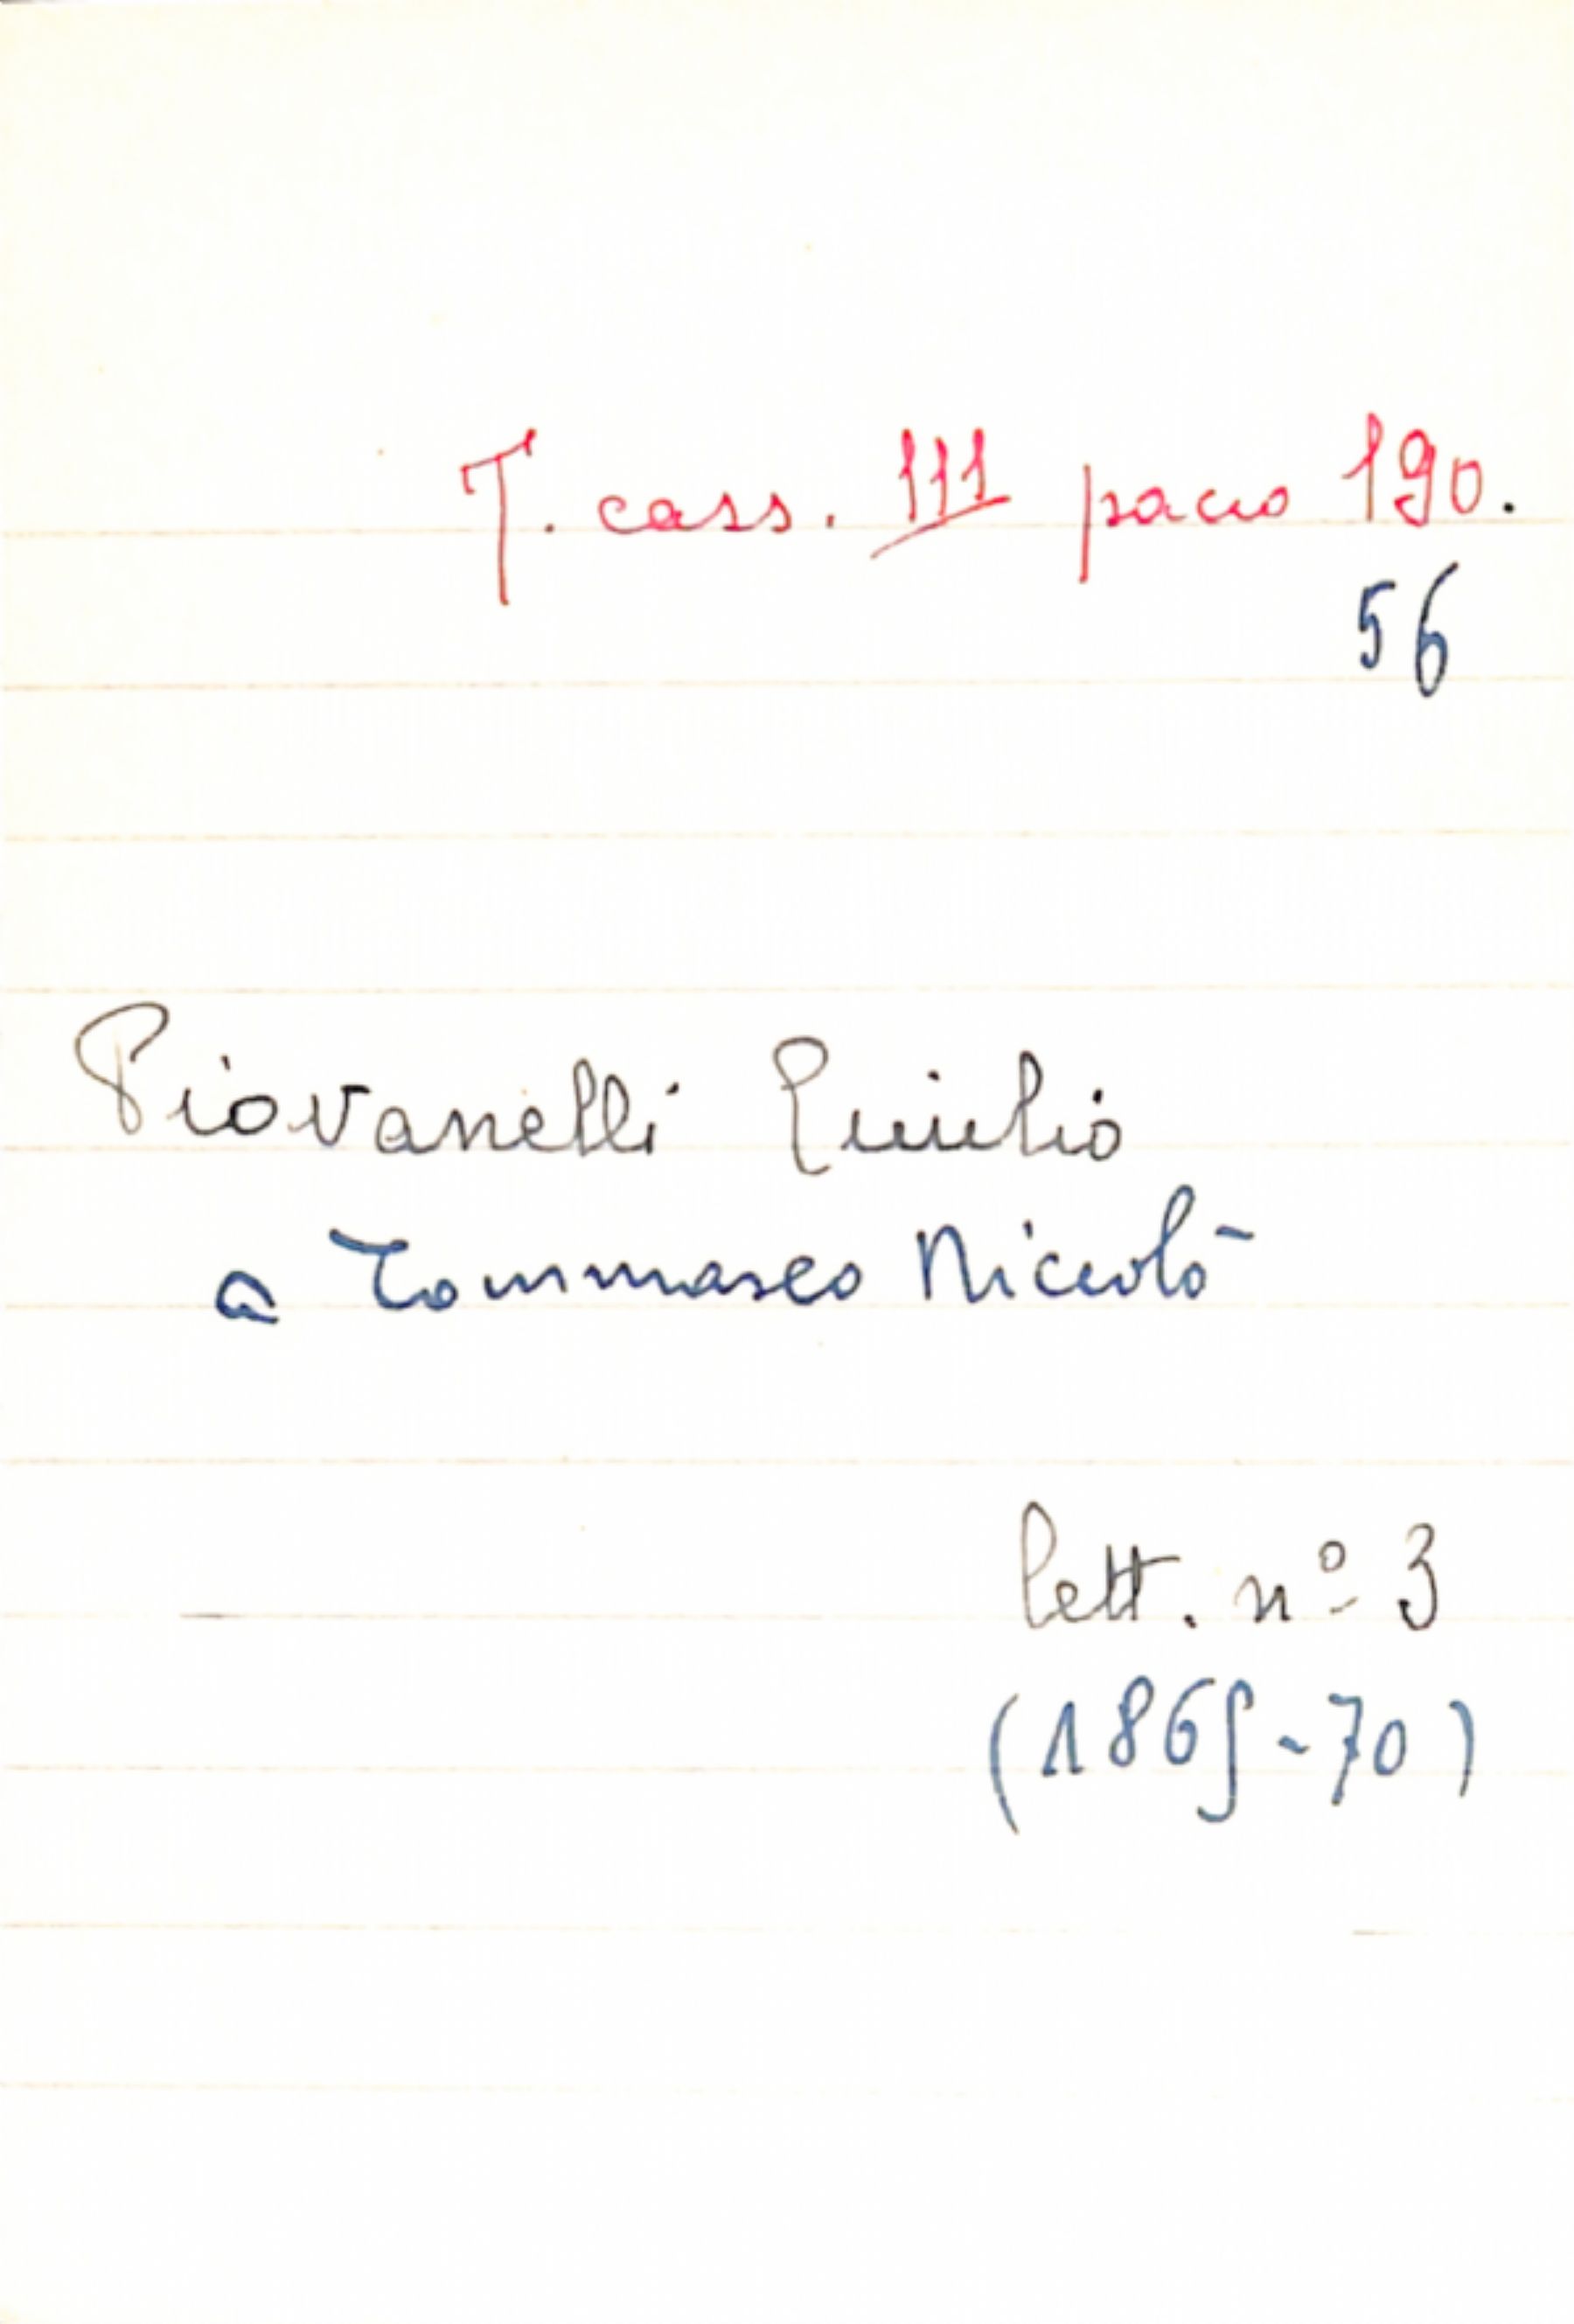 T. cass. III pacco 190.
56
Piovanelli Emilio
a Tommaseo Niccolò
lett. nº 3
(1869-70)